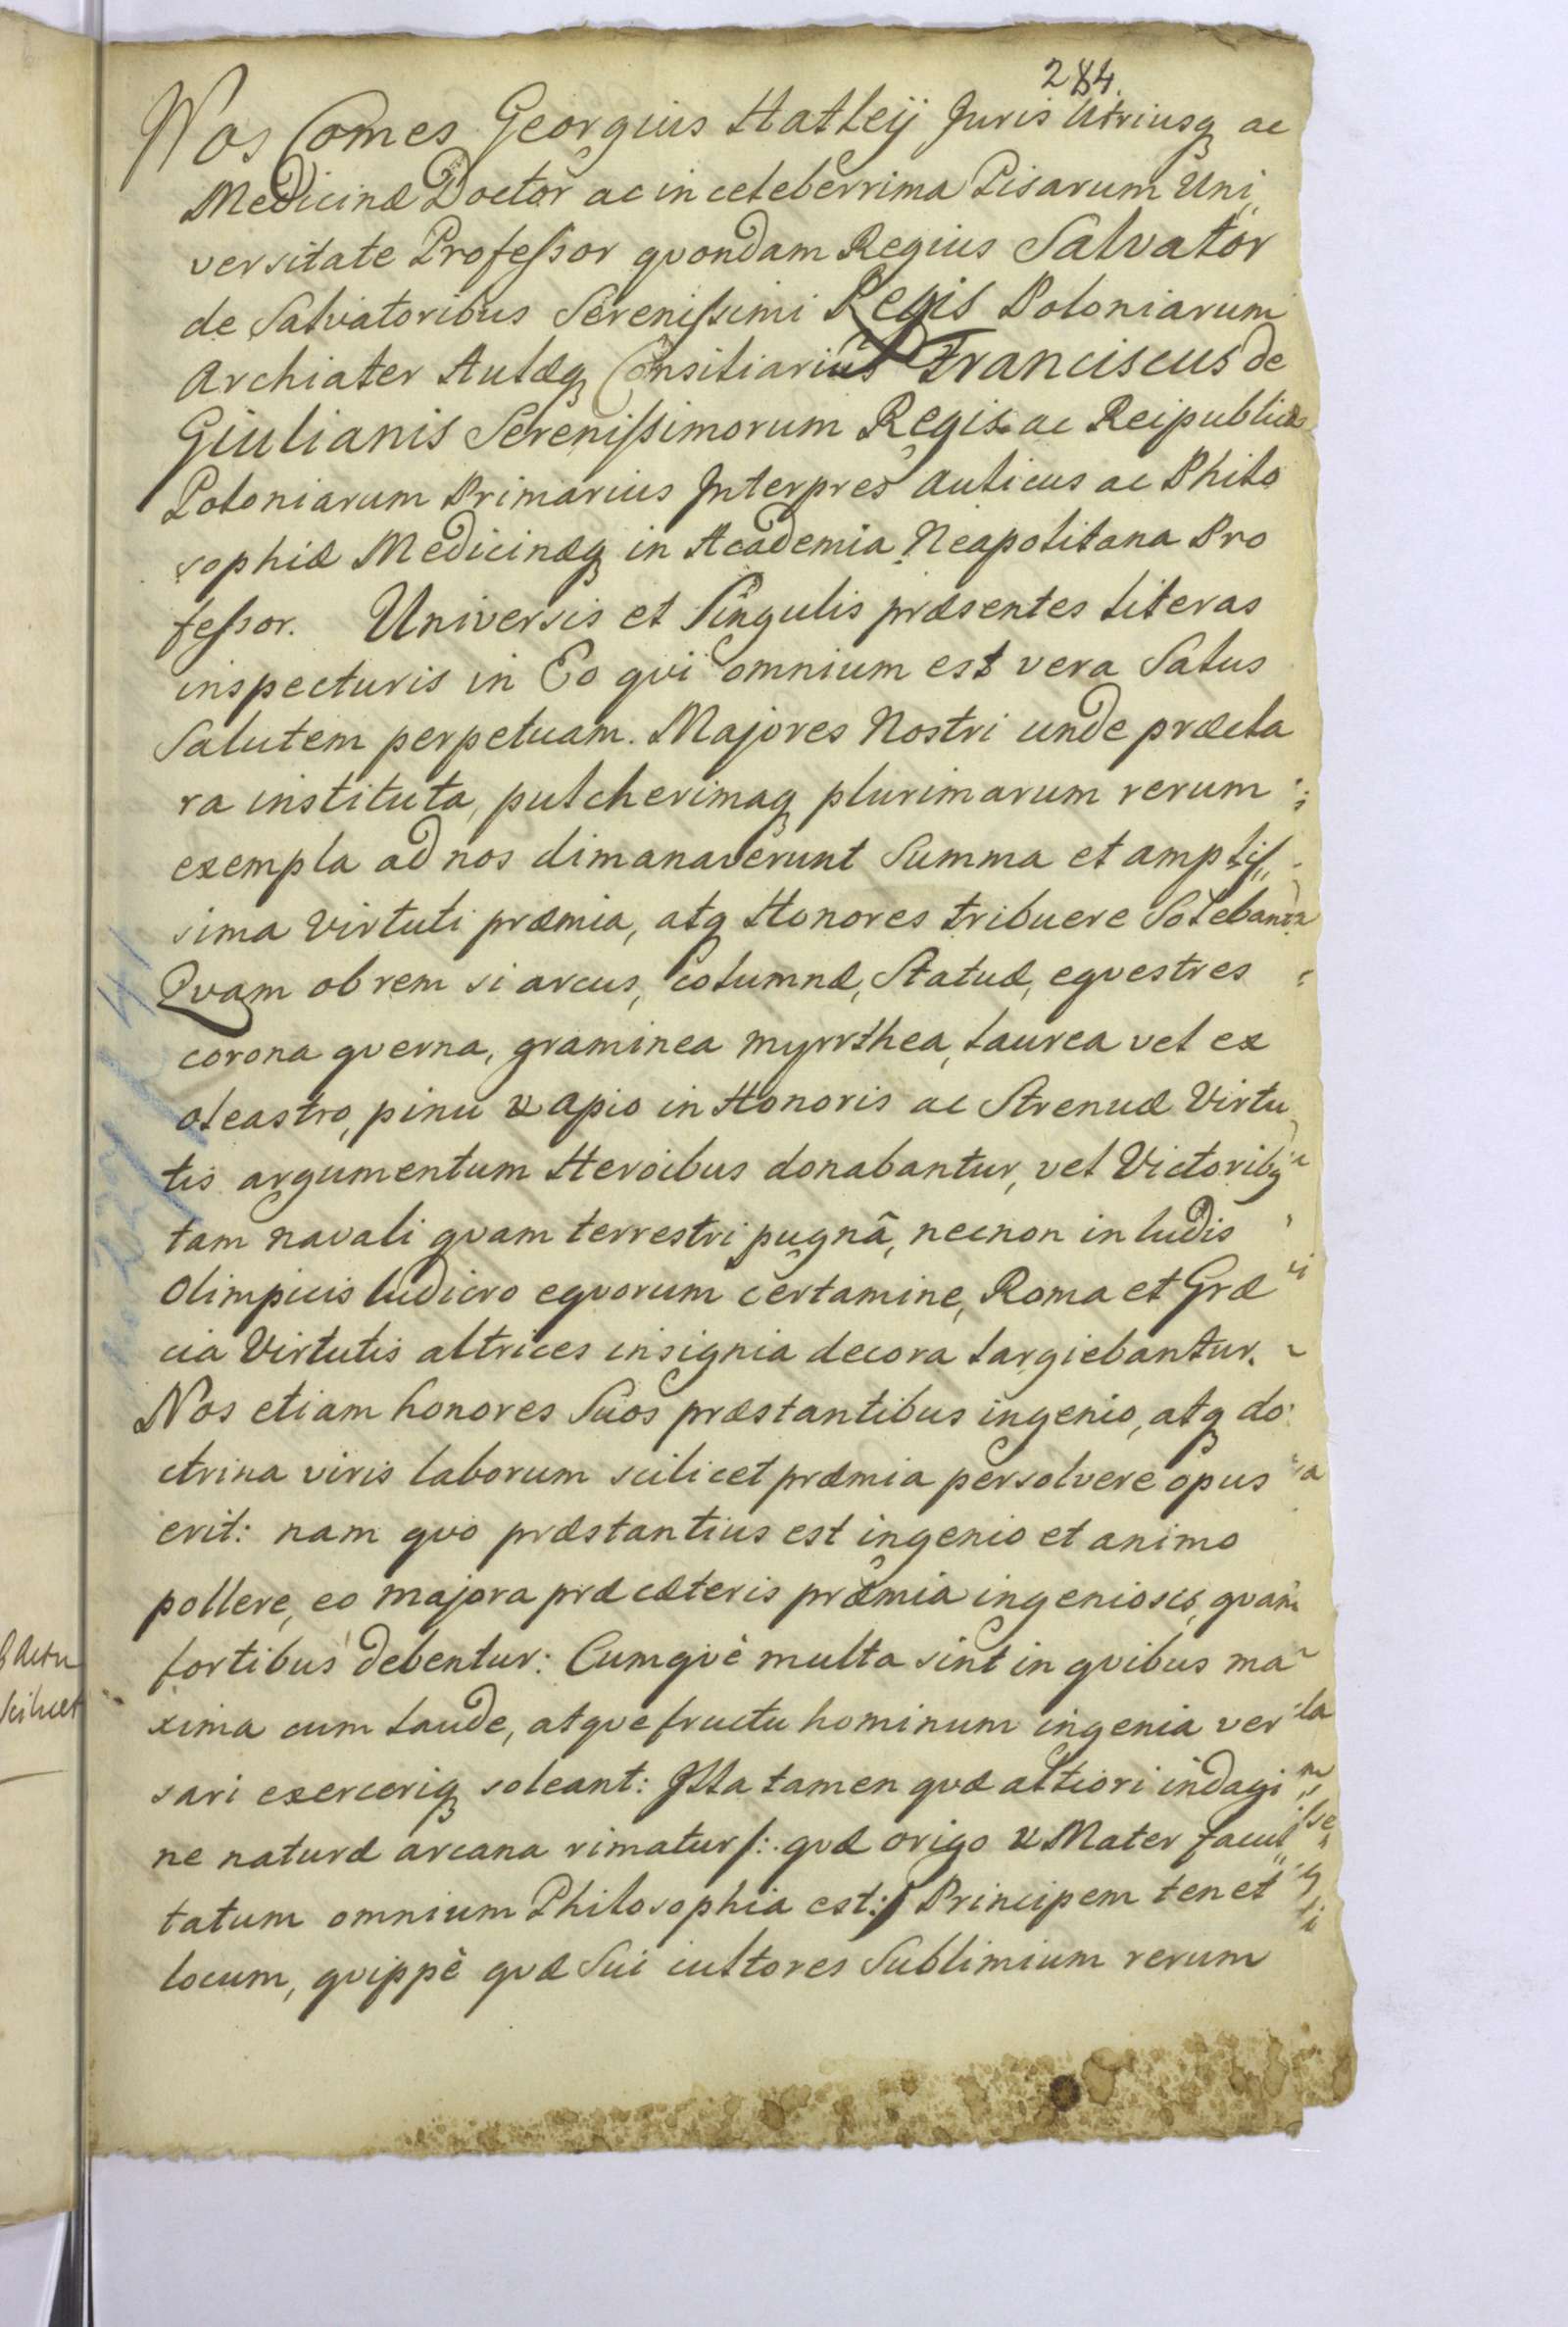 284.
Nos Comes Georgius Hatleÿ Juris Utriusq ac
Medicinæ Doctor ac in celeberrima Pisarum Uni,,
versitate Profeſsor qvondam Regius Salvator
de Salvatoribus Sereniſsimi Regis Poloniarum
Archiater Aulæq Consiliarius Franciscus de
Giulianis Sereniſsimorum Regis ac Reipublicæ
Poloniarum Primarius Interpres Aulicus ac Philo
sophiæ Medicinæq in Academia Neapolitana Pro
feſsor. Universis et Singulis præsentes literas
inspecturis in Eo qvi omnium est vera Salus
Salutem perpetuam. Majores Nostri unde præcla
ra instituta, pulcherimaq plurimarum rerum
exempla ad nos dimanaverunt Summa et ampliſ,,
sima Virtuti præmia, atq Honores tribuere Solebant
Qvam ob rem si arcus, columnæ, Statuæ, eqvestres
corona qverna, graminea myrrthea, laurea vel ex
oleastro, pinu & apio in Honoris ac Strenuæ Virtu
tis argumentum Heroibus donabantur, vel Victoribq
tam navali qvam terrestri pugnâ, necnon in ludis
Olimpicis ludicro eqvorum certamine, Roma et Græ
cia Virtutis altrices insignia decora largiebantur.
Nos etiam honores Suos præstantibus ingenio, atq do
ctrina viris laborum scilicet præmia persolvere opus
erit: nam qvo præstantius est ingenio et animo
pollere, eo majora præ cæteris præmia ingeniosis, qvam
fortibus debentur: Cumqvè multa sint in qvibus ma
xima cum laude, atqve fructu hominum ingenia ver
sari exerceriq soleant: Illa tamen qvæ altiori indagi
ne naturæ arcana rimatur /: qvæ origo & Mater facul,,
tatum omnium Philosophia est:/ Principem tenet
locum, qvippè qvæ Sui cultores Sublimium rerum
scilicet